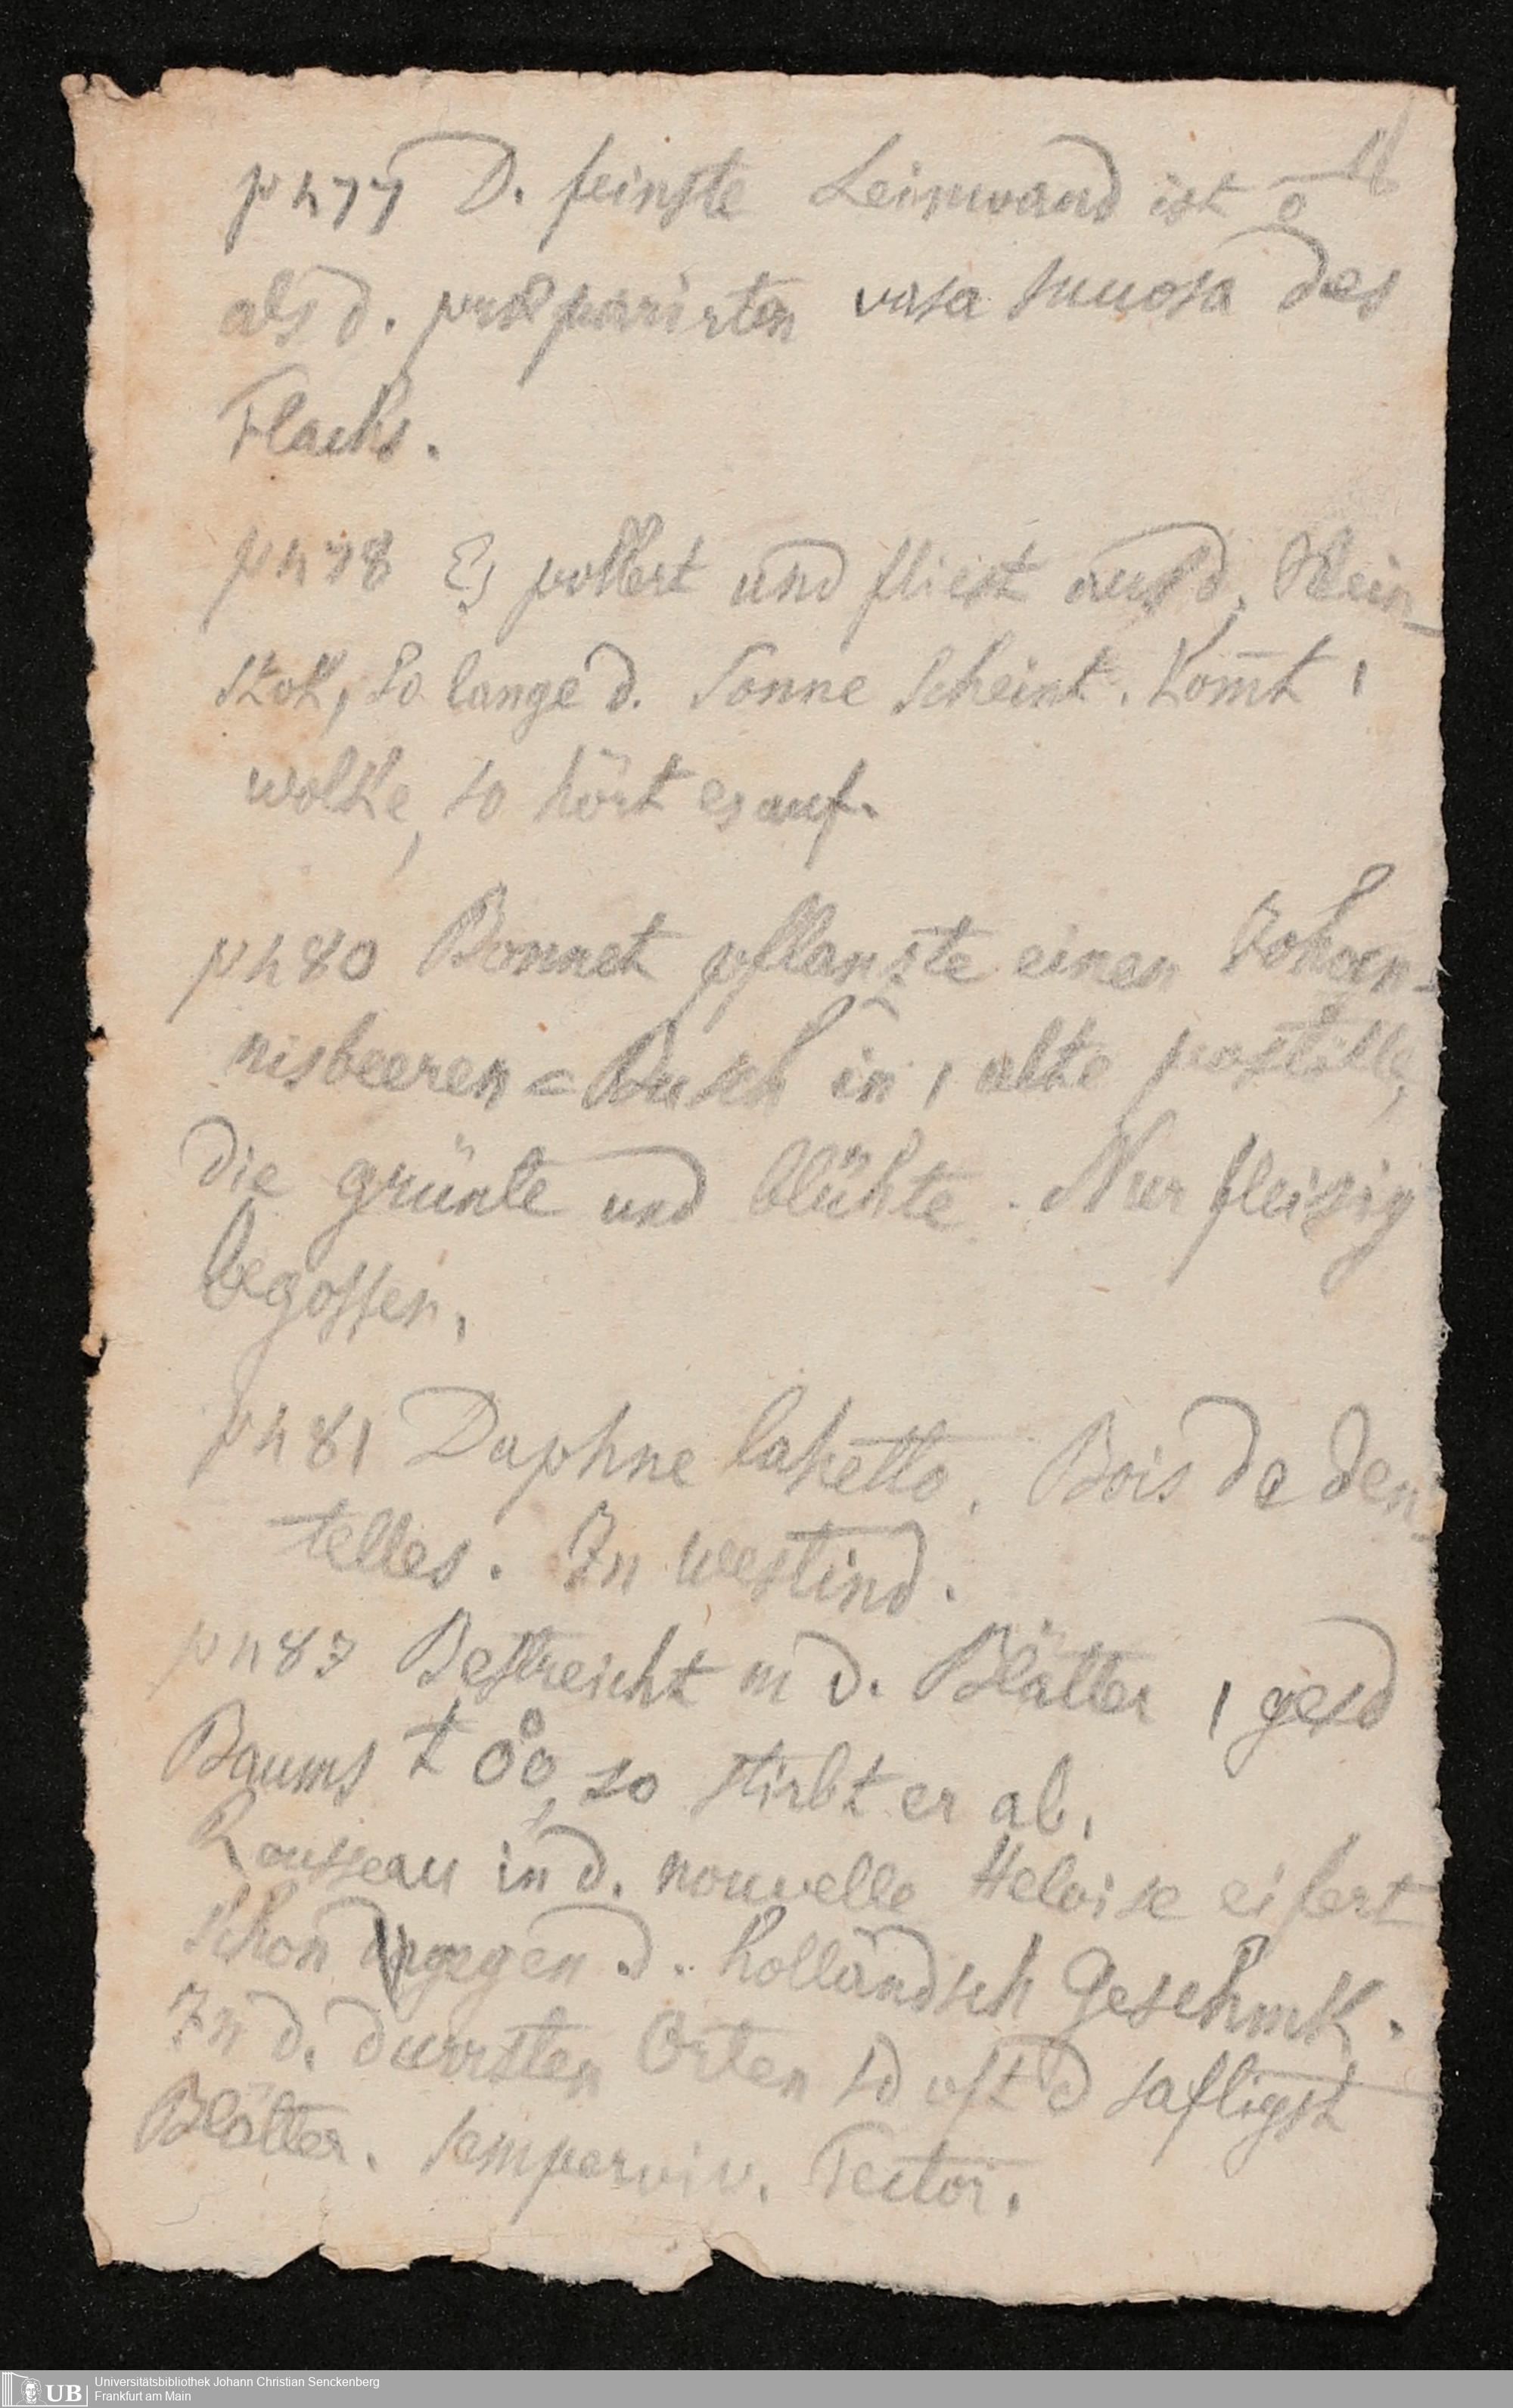 p h 77 D. feinste Leinwand ist o
als d. præparirten vasa succosa des
Flachs.
p h 78 Es pollert und fliest aus d. Wein-
stok, so lange d. Sonne scheint. Kom̄t 1
wolke, so hört es auf.
p h 80 Bonnet pflanzte einen Johan-
nisbeeren = Busch in 1 alte postille,
die grünte und blühte. Nur fleisig
begossen.
p h 81 Daphne laketto. Bois de den-
telles. In westind.
p h 83 Bestreicht m d. Blätter 1 gesd
Baums so stirbt er ab.
Rousseau in d. nouvelle Heloise eifert
schon gegen d. holländsch Geschmk.
In d. durrsten Orten sd oft d saftigst
Blätter. semperviv. Tector.
Universitätsbibliothek Johann Christian Senckenberg
Frankfurt am Main
UB